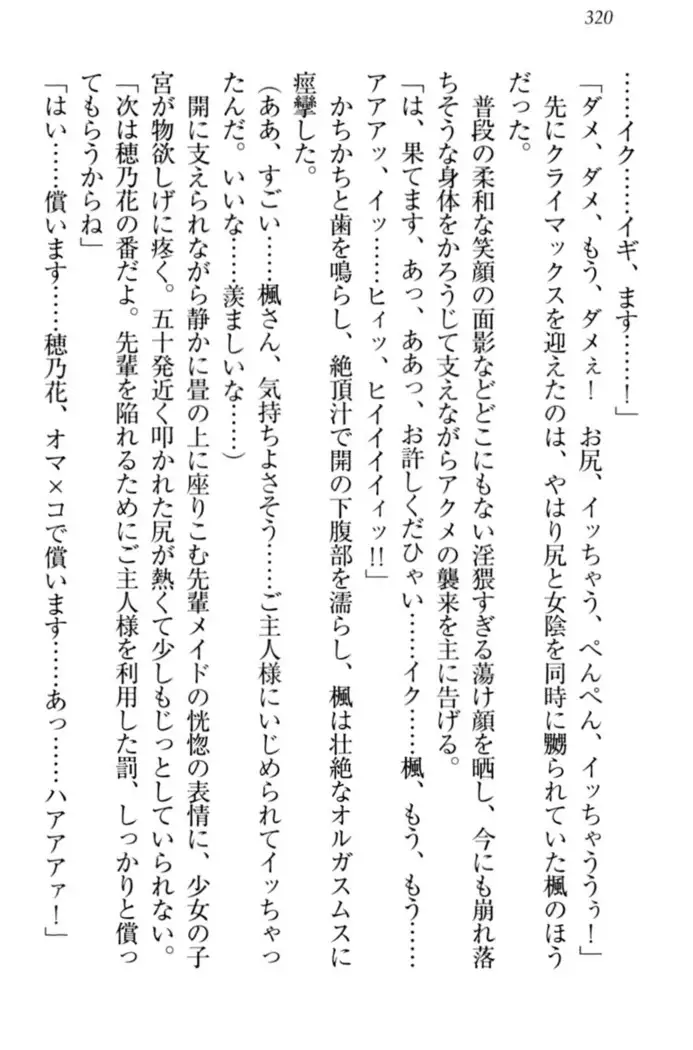 320
……イク……イギ、ます……！」
「ダメ、ダメ、もう、ダメぇ！　お尻、イッちゃう、ぺんぺん、イッちゃううぅ！」
　先にクライマックスを迎えたのは、やはり尻と女陰を同時に嬲られていた楓のほう
だった。
　普段の柔和な笑顔の面影などどこにもない淫猥すぎる蕩け顔を晒し、今にも崩れ落
ちそうな身体をかろうじて支えながらアクメの襲来を主に告げる。
「は、果てます、あっ、ああっ、お許しくだひゃい……イク……楓、もう、もう……
アアアッ、イッ……ヒィッ、ヒイイイイィッ!!」
　かちかちと歯を鳴らし、絶頂汁で開の下腹部を濡らし、楓は壮絶なオルガスムスに
痙攣した。
（ああ、すごい……楓さん、気持ちよさそう……ご主人様にいじめられてイッちゃっ
たんだ。いいな……羨ましいな……）
　開に支えられながら静かに畳の上に座りこむ先輩メイドの恍惚の表情に、少女の子
宮が物欲しげに疼く。五十発近く叩かれた尻が熱くて少しもじっとしていられない。
「次は穂乃花の番だよ。先輩を陥れるためにご主人様を利用した罰、しっかりと償っ
てもらうからね」
「はい……償います……穂乃花、オマ×コで償います……あっ……ハアアアァ！」